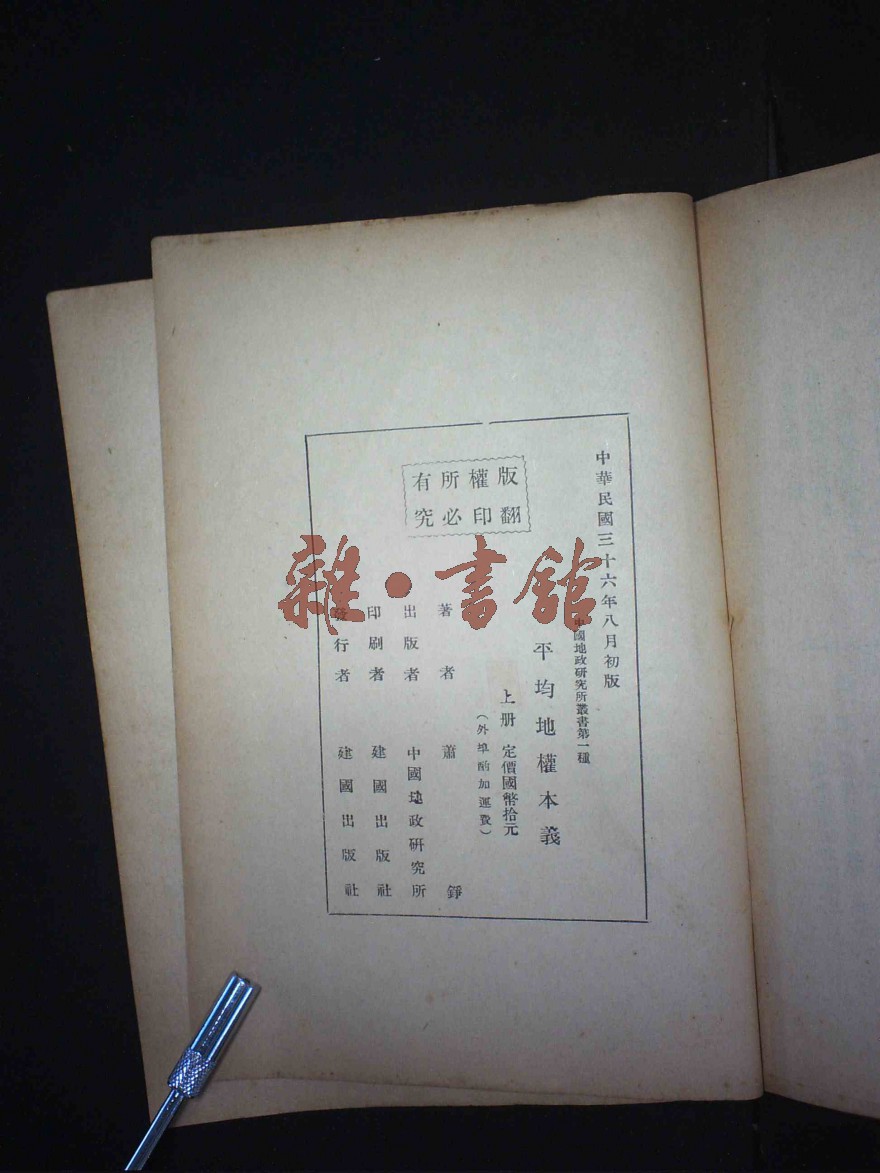 中華民國三十六年八月初版
中國地政研究所叢書第一種
平均地權本義
上册 定價國幣拾元
(外埠酌加運費)
版權所有
翻印必究
著者 蕭錚
出版者 中國地政研究所
印刷者 建國出版社
發行者 建國出版社
雜·書館